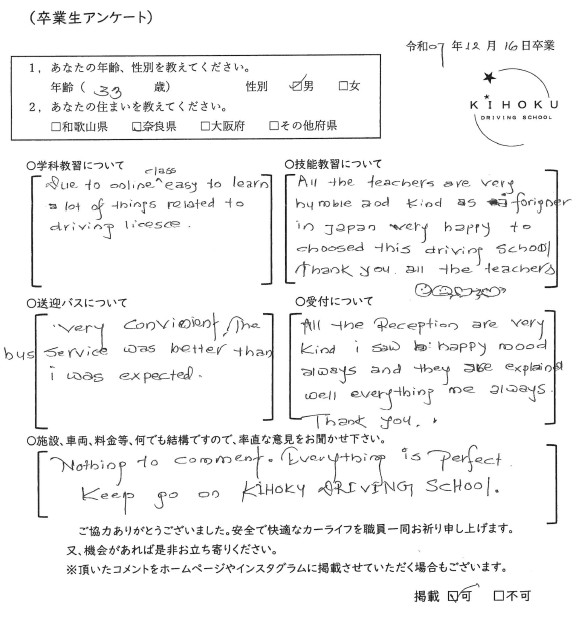 (卒業生アンケート)
令和07年12月16日卒業
1，あなたの年齢、性別を教えてください。
年齢（ 33 歳） 性別 ☑男 □女
2，あなたの住まいを教えてください。
□和歌山県 ☑奈良県 □大阪府 □その他府県
KIHOKU
DRIVING SCHOOL
○学科教習について
Due to online class easy to learn
a lot of things related to
driving licesce.
○技能教習について
All the teachers are very
humble and kind as a forigner
in Japan very happy to
choosed this driving school
Thank you. all the teachers
○送迎バスについて
very convinient, The
bus service was better than
i was expected.
○受付について
All the Reception are very
kind i saw happy mood
always and they are explaind
well everything me always.
Thank you.
○施設、車両、料金等、何でも結構ですので、率直な意見をお聞かせ下さい。
Nothing to comment. Everything is perfect.
Keep go on KIHOKU DRIVING SCHOOL.
ご協力ありがとうございました。安全で快適なカーライフを職員一同お祈り申し上げます。
又、機会があれば是非お立ち寄りください。
※頂いたコメントをホームページやインスタグラムに掲載させていただく場合もございます。
掲載 ☑可 □不可